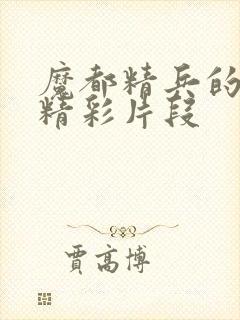 魔都精兵的
精彩片段
賈高博